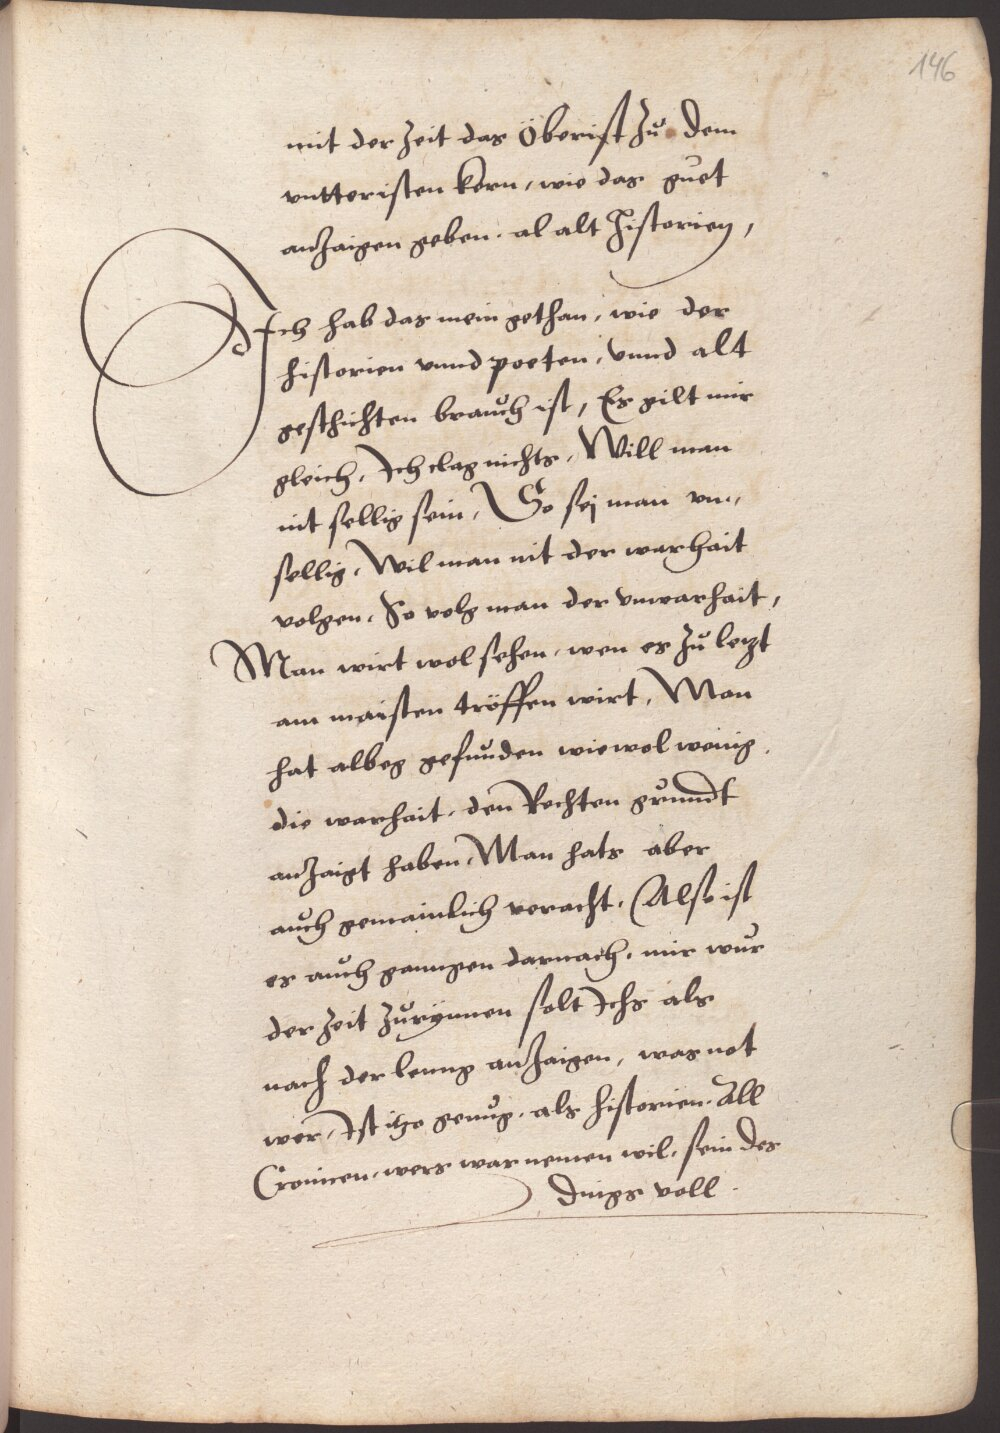 146
mit der Zeit das Öberist Zů dem
vntteristen kern, wie das guet
anZaigen geben. al alt Historien,
Ich hab das mein gethan, wie der
historien vnnd poeten, vnnd alt
geschichten brauch ist, Es gilt mir
gleich, Ich clag nichts, Will man
nit sellig sein, So sej man vn„
sellig, Wil man nit der warhait
volgen, So volg man der vnwarhait,
Man wirt wol sehen, wen es Zů letzt
am maisten tröffen wirt, Man
hat albeg gefunden wiewol wenig,
die warhait, den Rechten grundt
anZaigt haben, Man hats aber
auch gemainlich veracht, Also ist
es auch ganngen darnach, mir wur
der Zeit Zurÿnnen solt Ichs als
nach der leng anZaigen, was not
wer, Ist itzo genug, als historien, All
Cronicen, wers war nemen wil, sein des
dings voll.